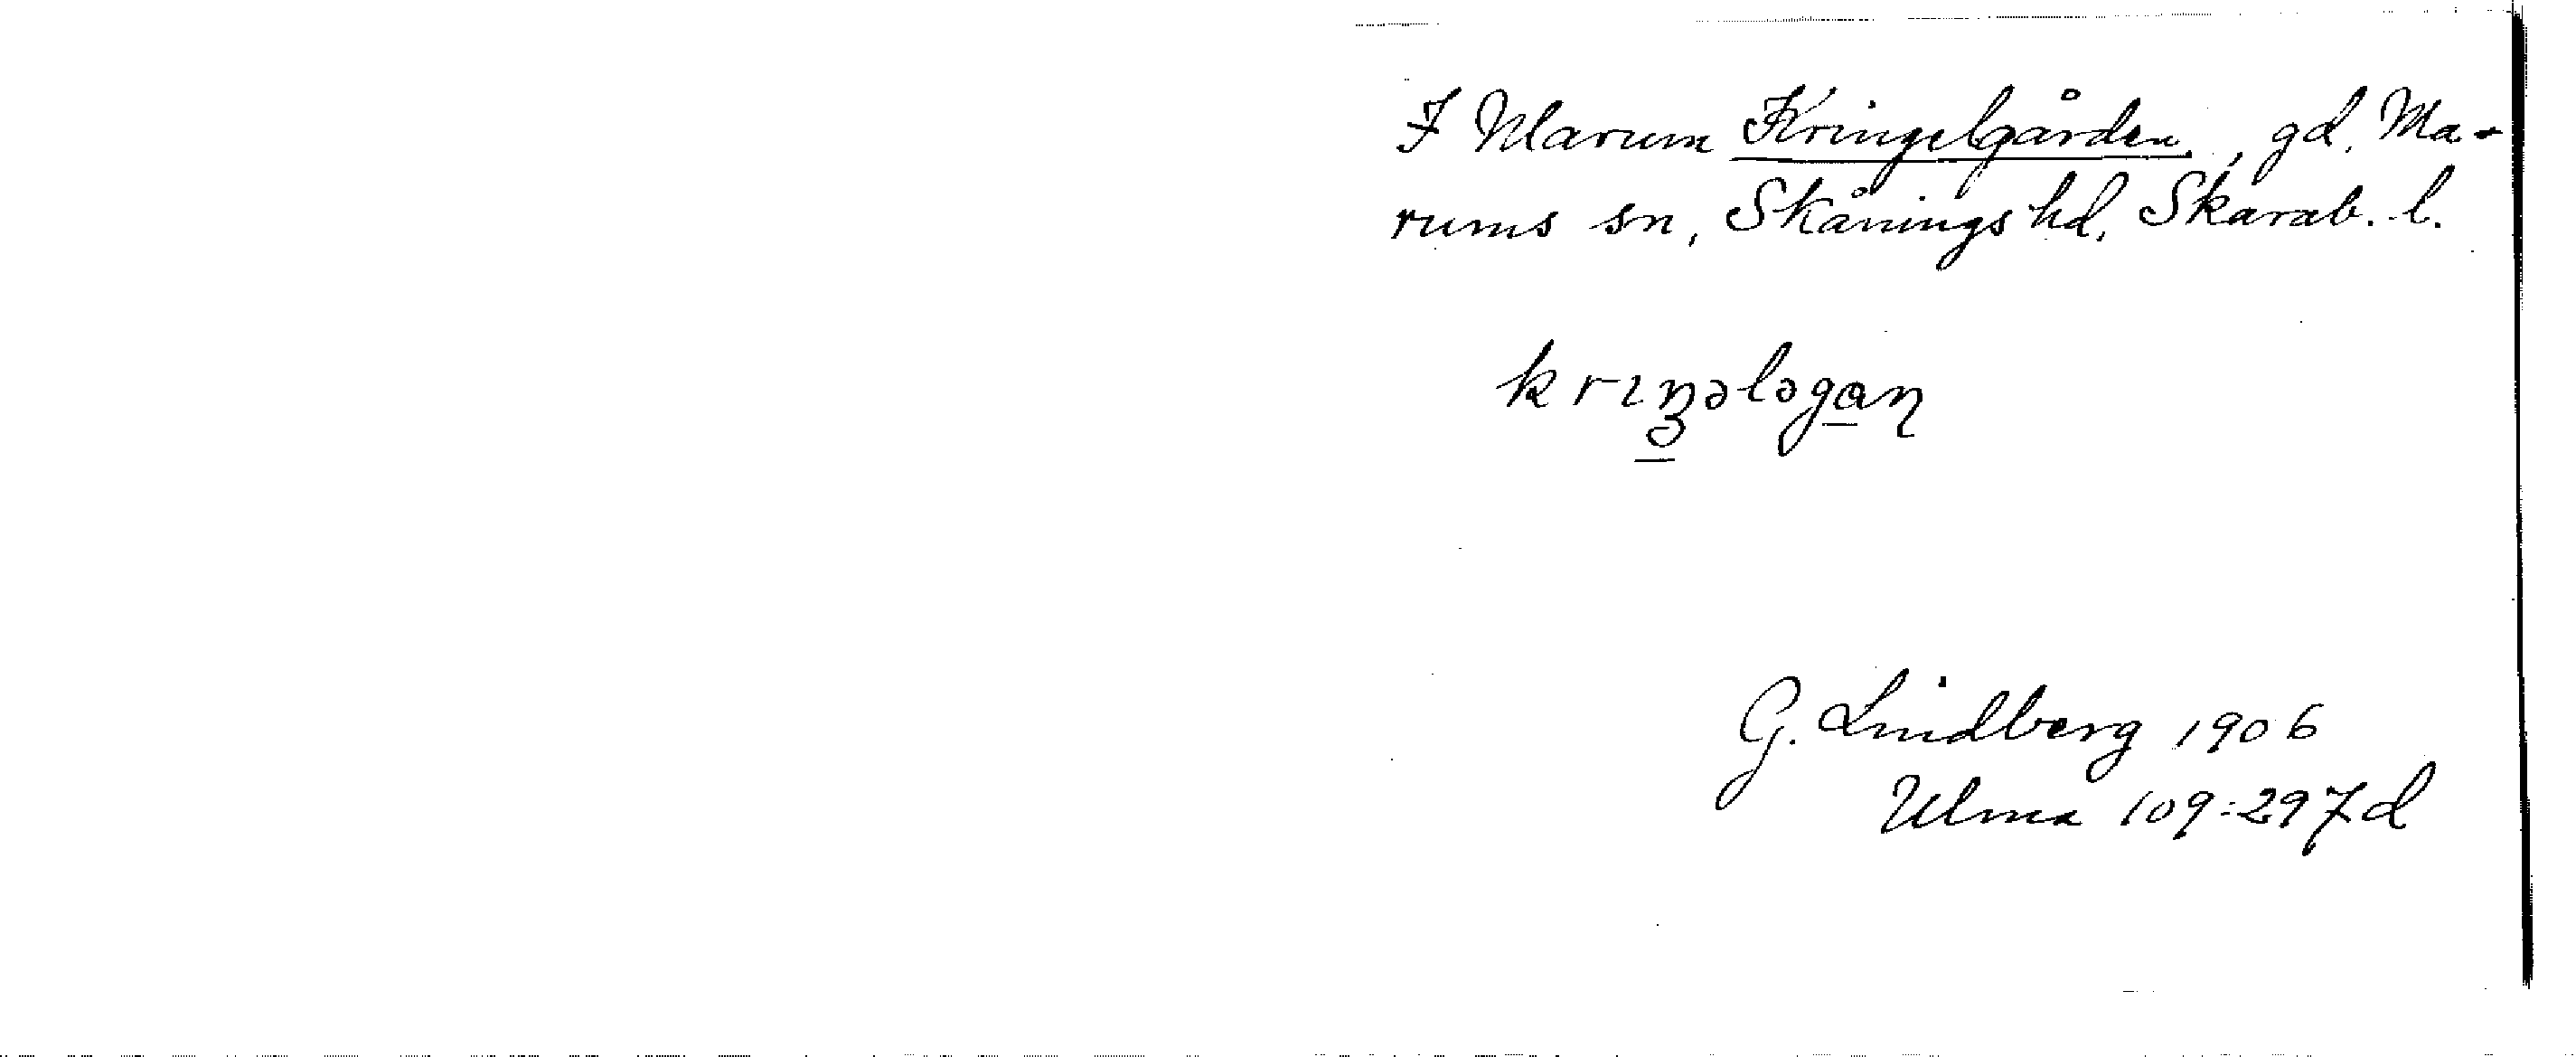 I Marum Kringelgården, gd, Ma-
rums sn, Skånings hd, Skarab. l.
krıŋ̲ələga̲ɳ
G. Lindberg 1906
Ulma 109:297d